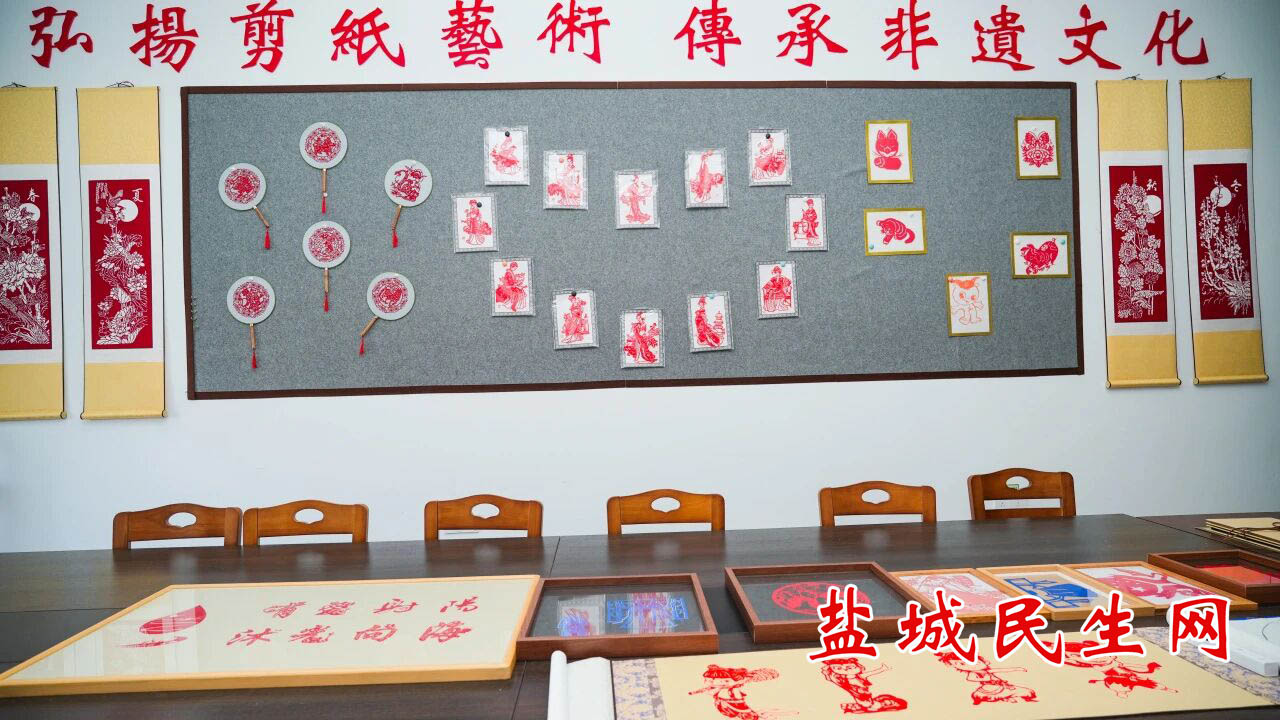 弘揚剪紙藝術 傳承非遺文化
春
夏
秋
冬
盐城民生网